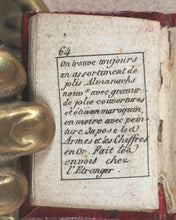 64
On trouve toujours
un assortiment de
jolis Almanachs
nouv.x avec gravur
de jolie couvertures
et étui en maroquin,
en moire avec pein-
ture. On pose les
Armes et les Chiffres
en Or. Fait les
envois chez
l'Etranger